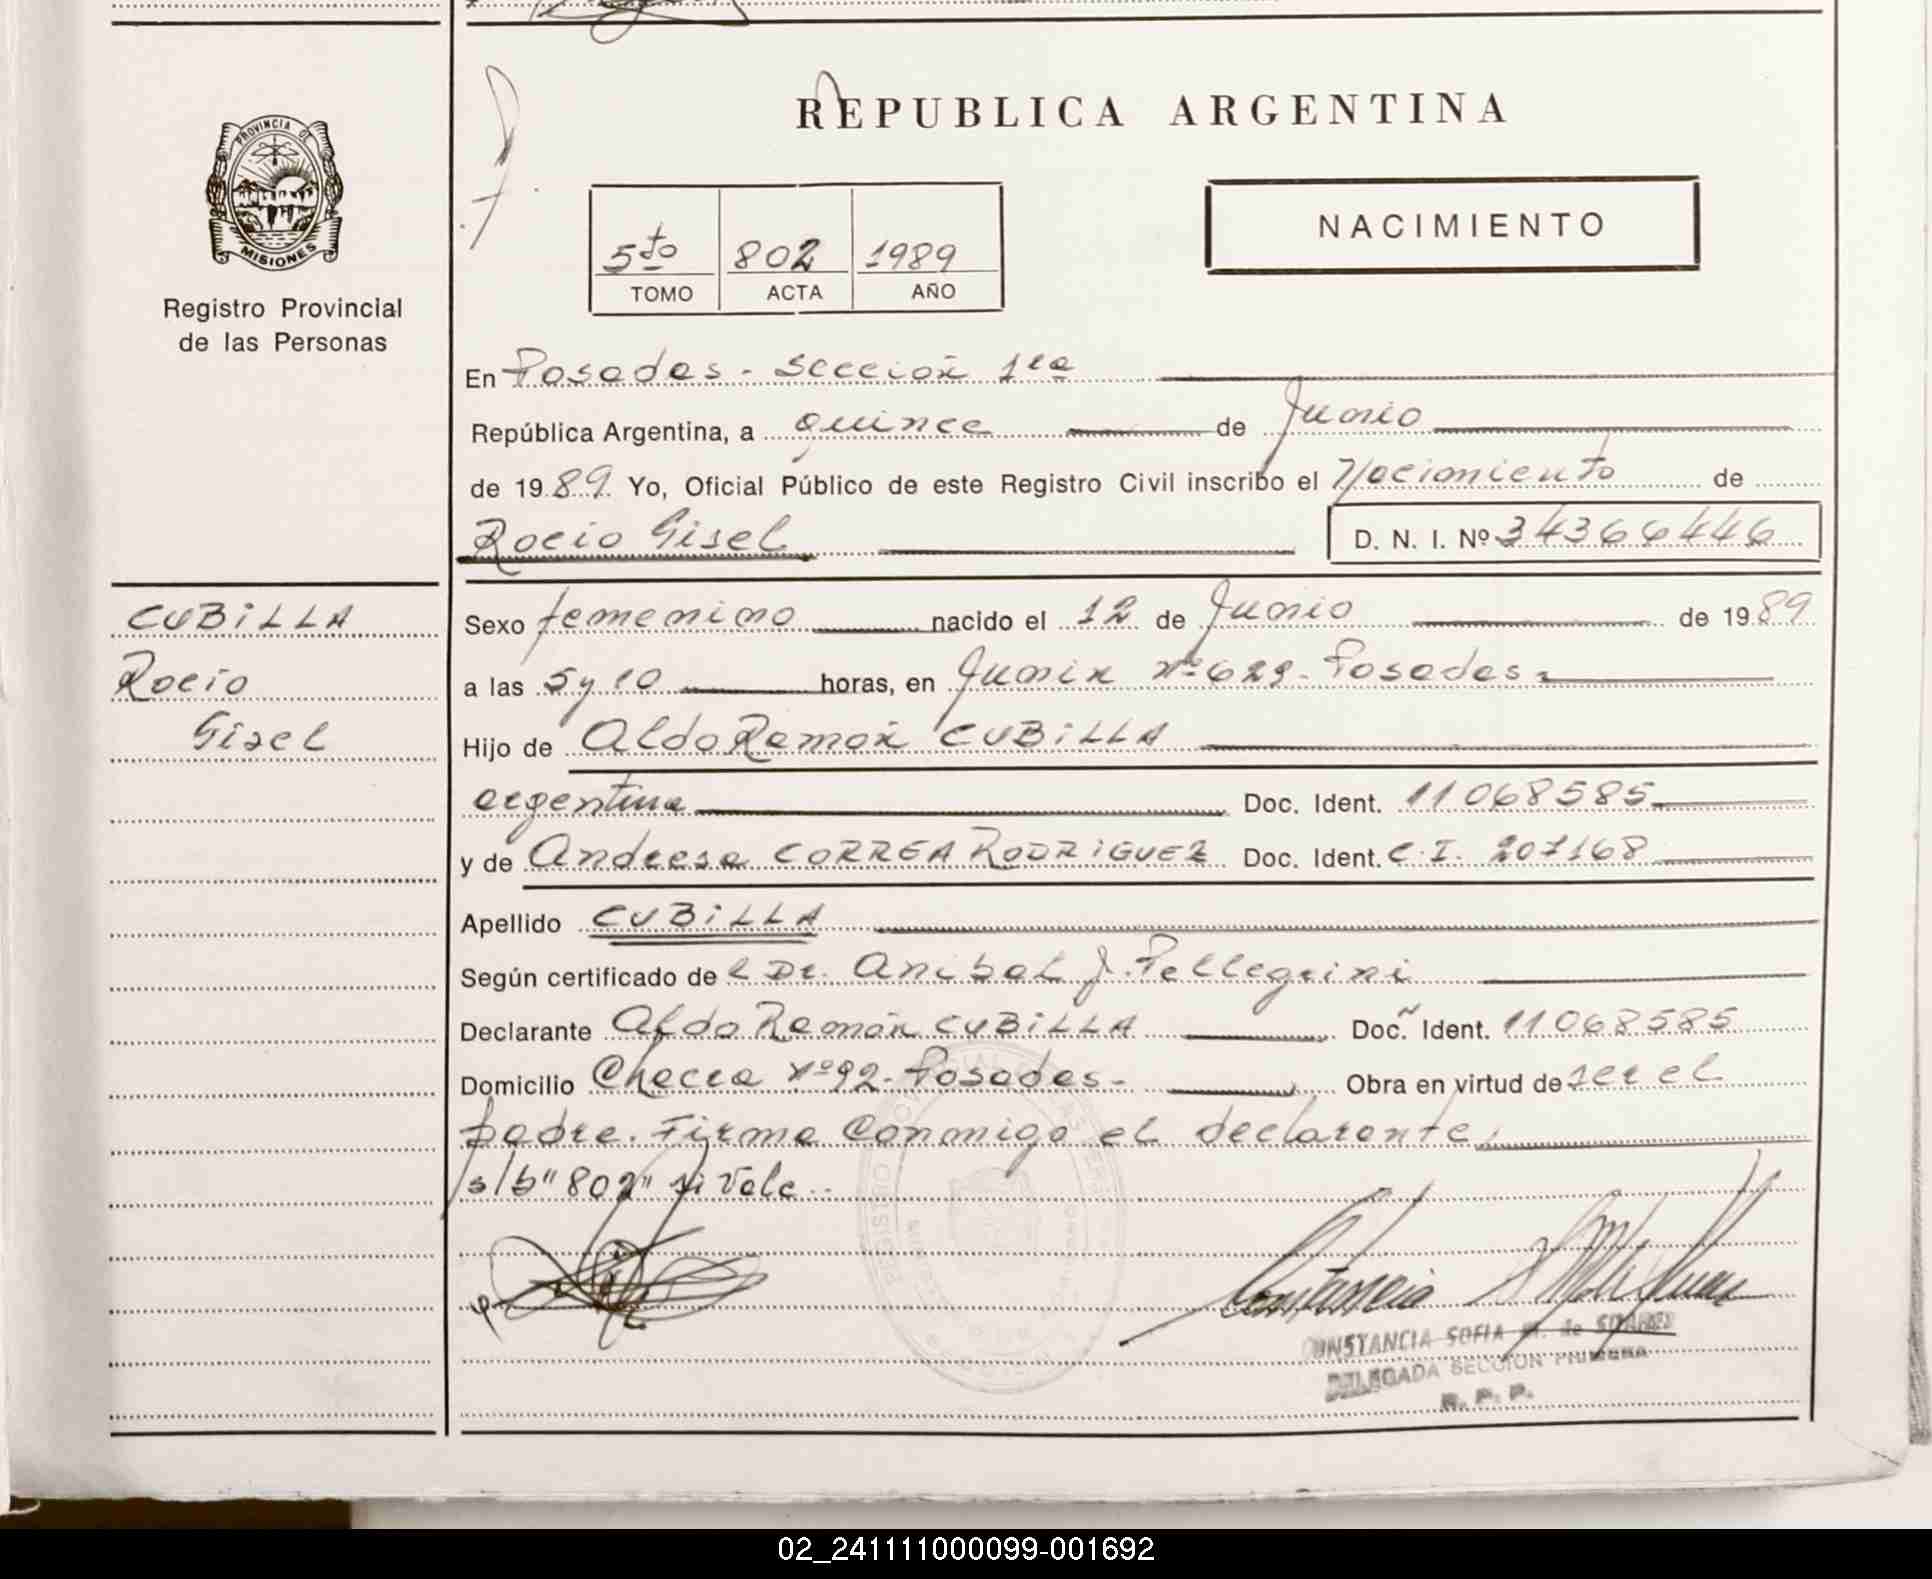 REPUBLICA ARGENTINA
PROVINCIA DE
MISIONES
Registro Provincial
de las Personas
5to 802 1989
TOMO ACTA AÑO
NACIMIENTO
En Posadas - Sección 1ra
República Argentina, a quince de Junio
de 1989. Yo, Oficial Público de este Registro Civil inscribo el Nacimiento de
Rocio Gisel D. N. I. Nº 34366446
CUBILLA
Rocio
Gisel
Sexo femenino nacido el 12 de Junio de 1989
a las 5 y 10 horas, en Junin Nº 629 - Posadas-
Hijo de Aldo Ramón CUBILLA
argentina Doc. Ident. 11068585
y de Andresa CORREA RODRIGUEZ Doc. Ident. C.I. 207168
Apellido CUBILLA
Según certificado de l Dr. Anibal J. Pellegrini
Declarante Aldo Ramón CUBILLA Doc. Ident. 11068585
Domicilio Nº 92 - Posadas - Obra en virtud de ser el
padre. Firma conmigo el declarante,
s/b "802" si Vale..
Constancia
CONSTANCIA SOFIA M. de SUAREZ
DELEGADA SECCION PRIMERA
R. P. P.
02_241111000099-001692